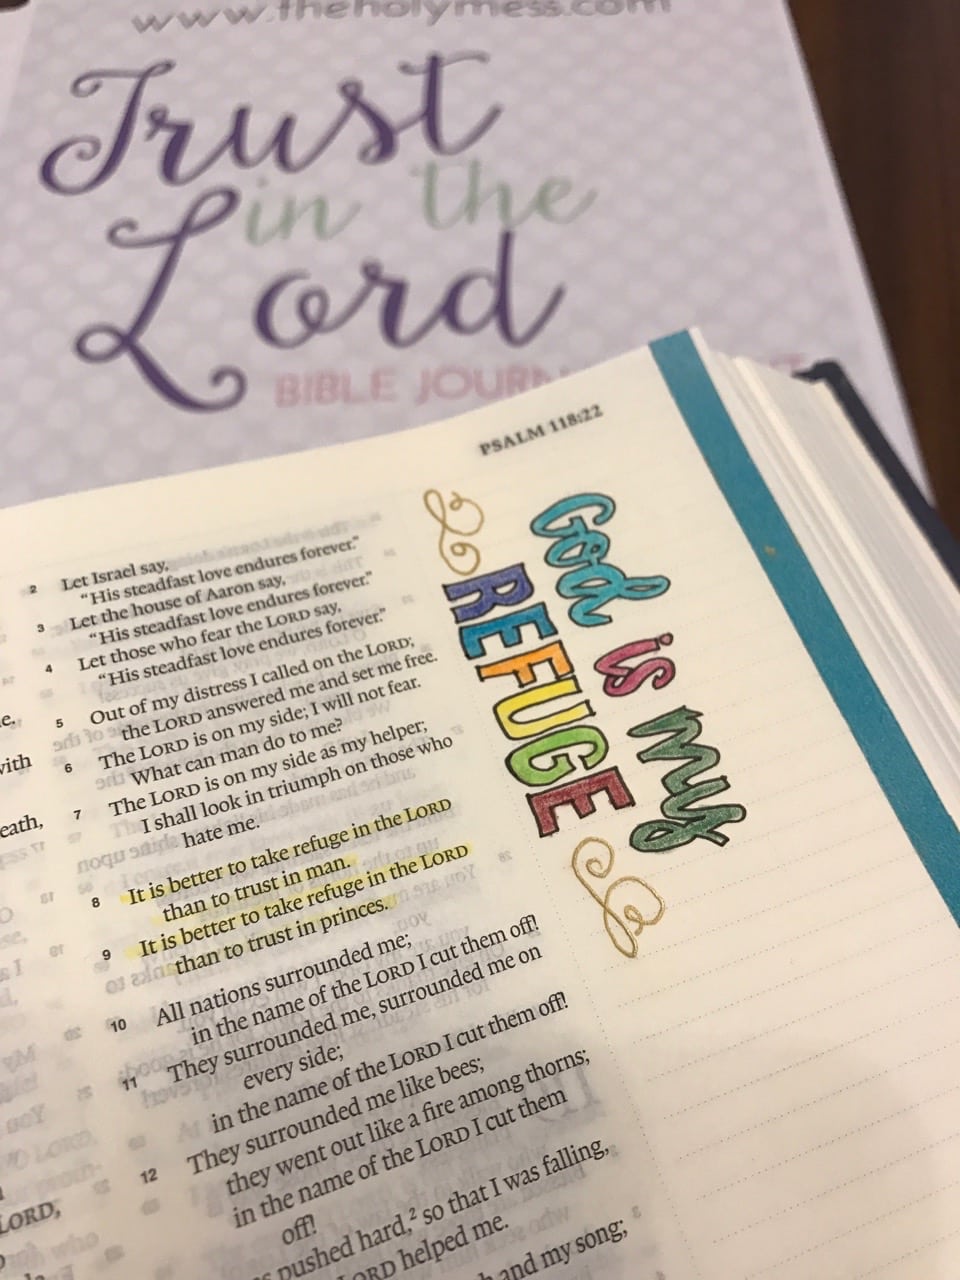 www.theholymess.com
Trust
in the
Lord
BIBLE JOUR
PSALM 118:22
God is my
REFUGE
2 Let Israel say,
“His steadfast love endures forever.”
3 Let the house of Aaron say,
“His steadfast love endures forever.”
4 Let those who fear the LORD say,
“His steadfast love endures forever.”
5 Out of my distress I called on the LORD;
the LORD answered me and set me free.
6 The LORD is on my side; I will not fear.
What can man do to me?
7 The LORD is on my side as my helper;
I shall look in triumph on those who
hate me.
8 It is better to take refuge in the LORD
than to trust in man.
9 It is better to take refuge in the LORD
than to trust in princes.
10 All nations surrounded me;
in the name of the LORD I cut them off!
11 They surrounded me, surrounded me on
every side;
in the name of the LORD I cut them off!
12 They surrounded me like bees;
they went out like a fire among thorns;
in the name of the LORD I cut them
off!
pushed hard,² so that I was falling,
LORD helped me.
and my song;
LORD,